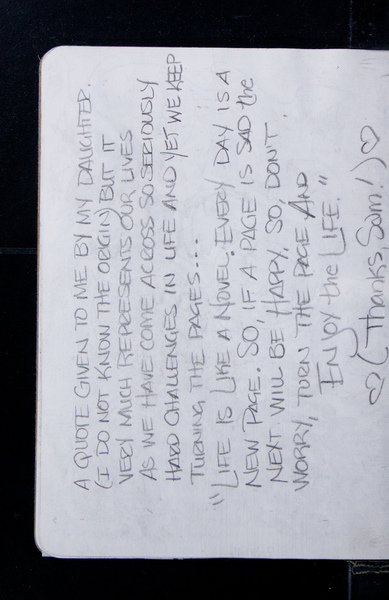 A QUOTE GIVEN TO ME BY MY DAUGHTER.
(I DO NOT KNOW THE ORIGIN) BUT IT
VERY MUCH REPRESENTS OUR LIVES
AS WE HAVE COME ACROSS SO SERIOUSLY
HARD CHALLENGES IN LIFE AND YET WE KEEP
TURNING THE PAGES...
"LIFE IS LIKE A NOVEL. EVERY DAY IS A
NEW PAGE. SO, IF A PAGE IS SAD the
NEXT WILL BE HAPPY. SO, DON'T
WORRY, TURN THE PAGE AND
ENJOY the LIFE."
(Thanks, Sam!)